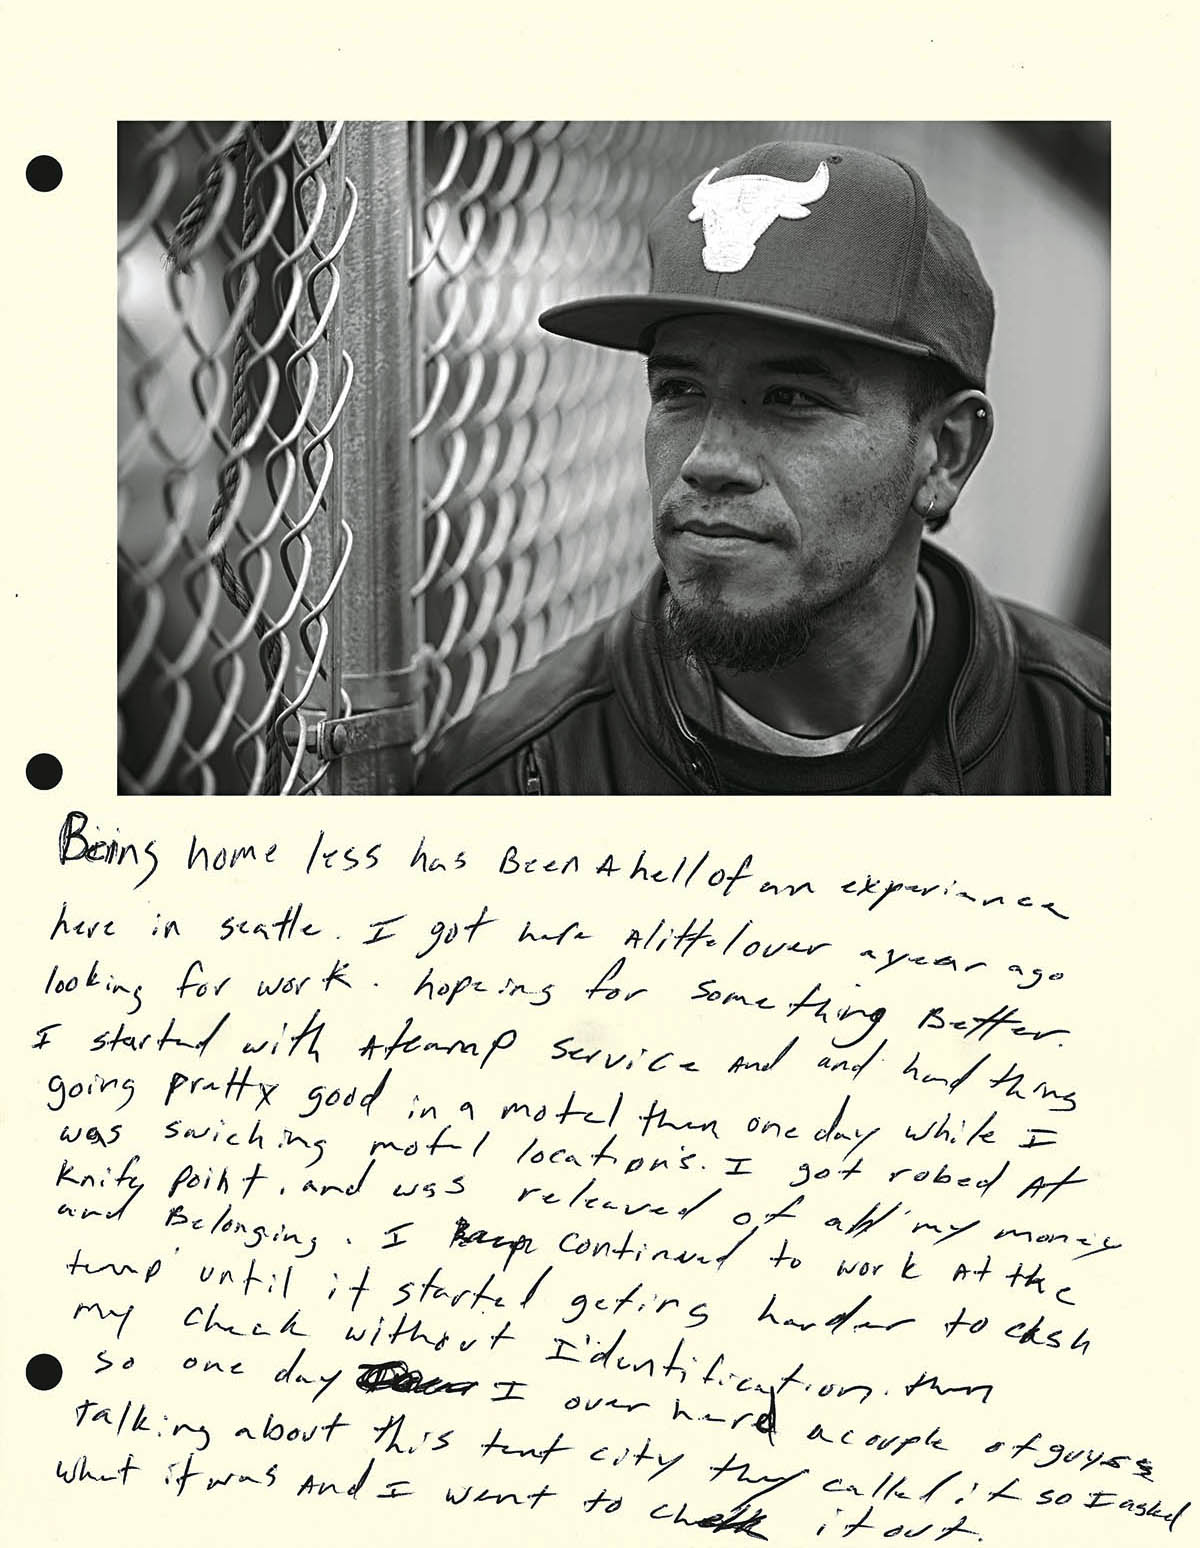 Being home less has Been A hell of an experience
here in seattle. I got here A littel over a year ago
looking for work. hopeing for something Better.
I started with A teamp service And and had thing
going pretty good in a motel then one day while I
was swiching motel locations. I got robed At
Knife Point. and was releaved of all my money
and Belonging. I continued to work At the
temp until it started geting harder to cash
my check without I'dentification. then
so one day I over herd a couple of guys
talking about this tent city they called it so I asked
what it was And I went to check it out.